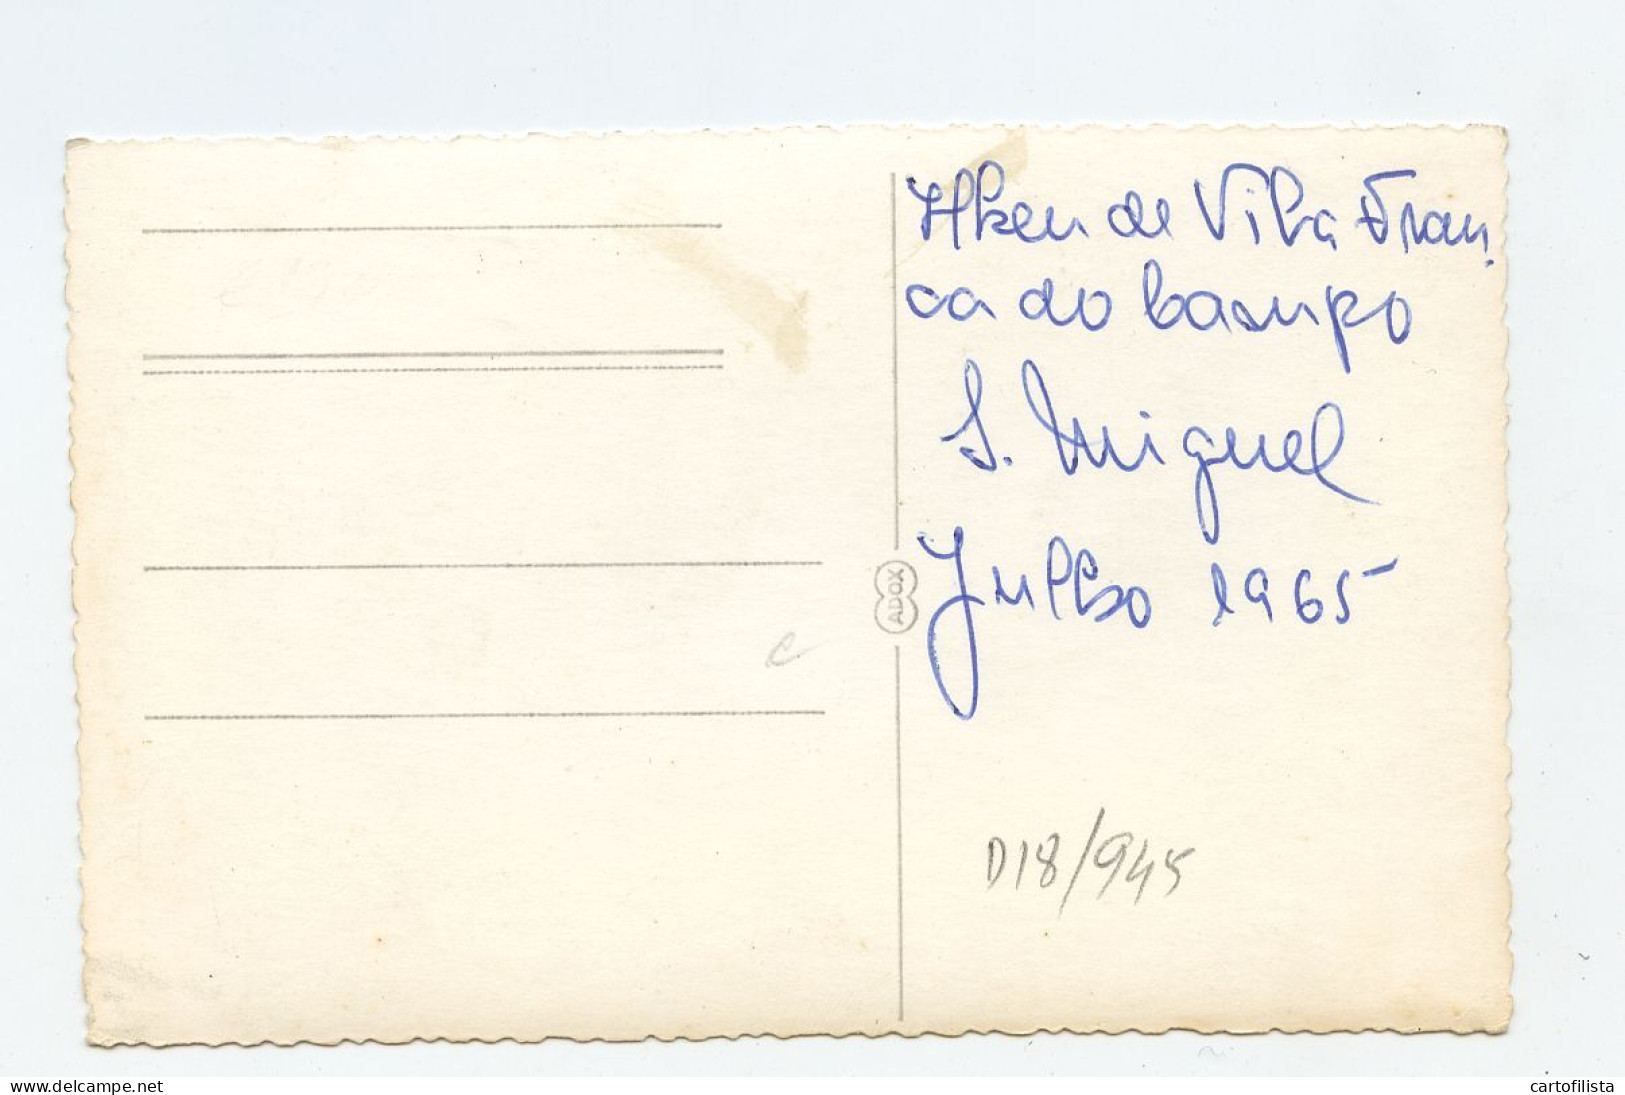 Ilheu de Vila Fran
ca do Campo
S. Miguel
Julho 1965
ADOX
C
D18/945
delcampe.net
cartofilista